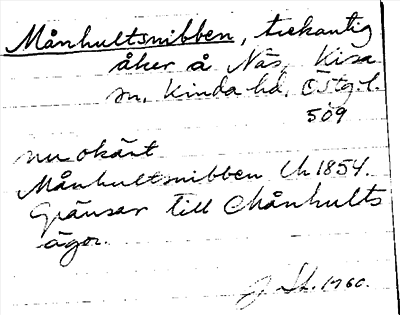 Månhultsnibben, trekantig
åker å Näs, Kisa
sn, Kinda hd, Östg. l.
509
nu okänt
Månhultsnibben Lh 1854.
Gränsar till Månhults
ägor.
1960.